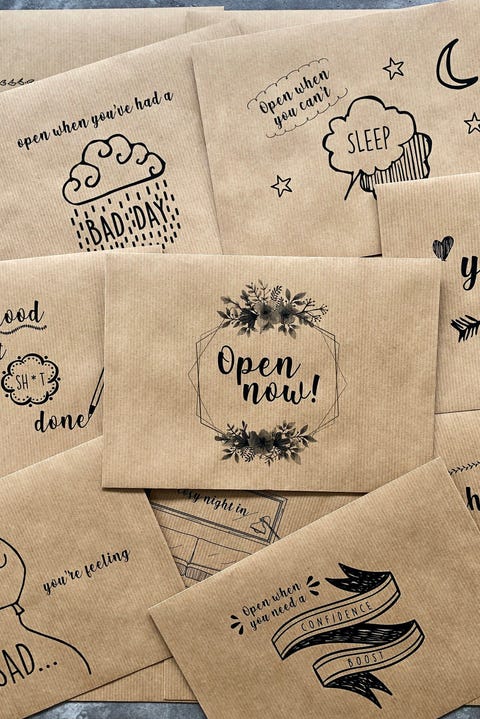 open when you've had a
BAD DAY
Open when
you can't
SLEEP
ood
SH*T
done
y
Open
now!
cosy night in
you're feeling
SAD...
Open when
you need a
CONFIDENCE
BOOST
h